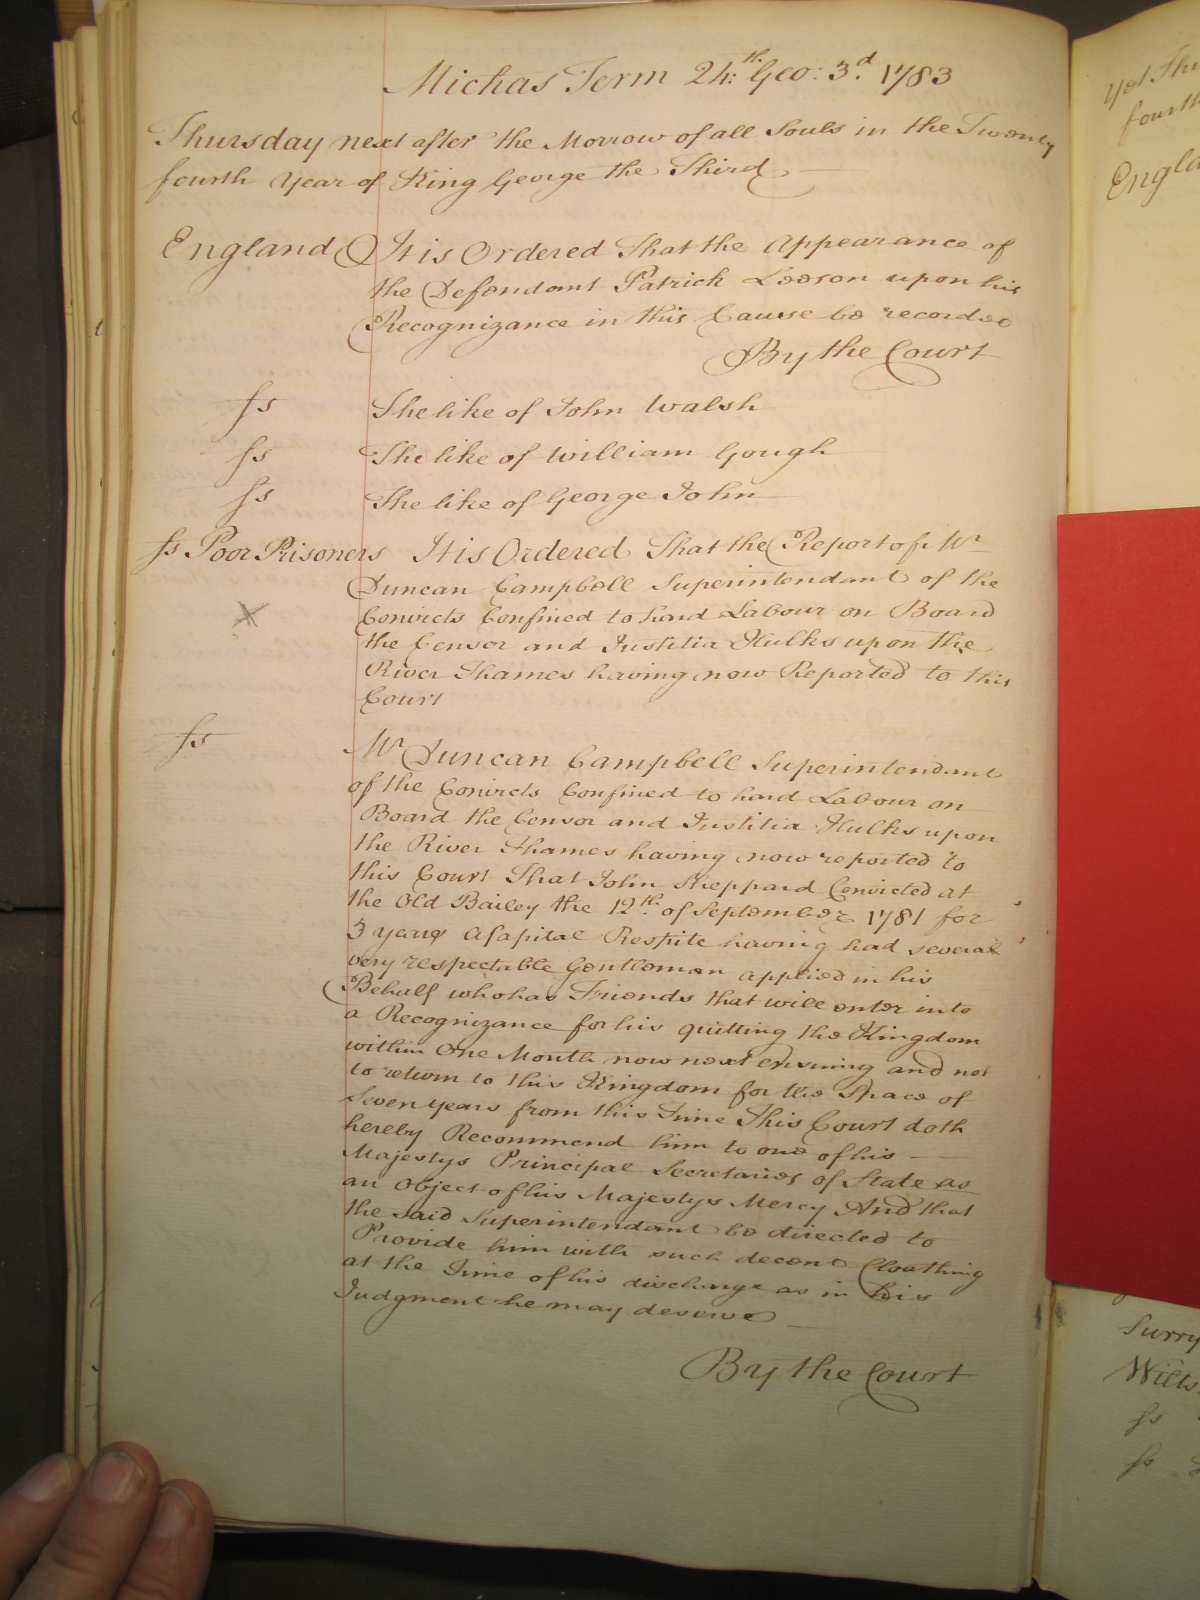 Michas Term 24:th Geo: 3.d 1783
Thursday next after the Morrow of all Souls in the Twenty
fourth Year of King George the Third
England It is Ordered That the Appearance of
the Defendant Patrick Leeson upon his
Recognizance in this Cause be recorded
By the Court
ss The like of John Walsh
ss The like of William Gough
ss The like of George John
ss Poor Prisoners It is Ordered That the Report of Mr
Duncan Campbell Superintendant of the
Convicts Confined to hard Labour on Board
the Censor and Justitia Hulks upon the
River Thames having now Reported to this
Court
ss Mr Duncan Campbell Superintendant
of the Convicts Confined to hard Labour on
Board the Censor and Justitia Hulks upon
the River Thames having now reported to
this Court That John Sheppard Convicted at
the Old Bailey the 12th. of September 1781 for
3 years a Capital Respite having had several
very respectable Gentleman applied in his
Behalf who has Friends that will enter into
a Recognizance for his quitting the Kingdom
within One Month now next ensuing and not
to return to this Kingdom for the Space of
Seven years from this Time This Court doth
hereby Recommend him to one of his
Majestys Principal Secretaries of State as
an Object of his Majestys Mercy And that
the said Superintendant be directed to
Provide him with such decent Cloathing
at the Time of his discharge as in his
Judgment he may deserve
By the Court
yet Thi
fourth
Engla
Surry
Wilts
ss
ss